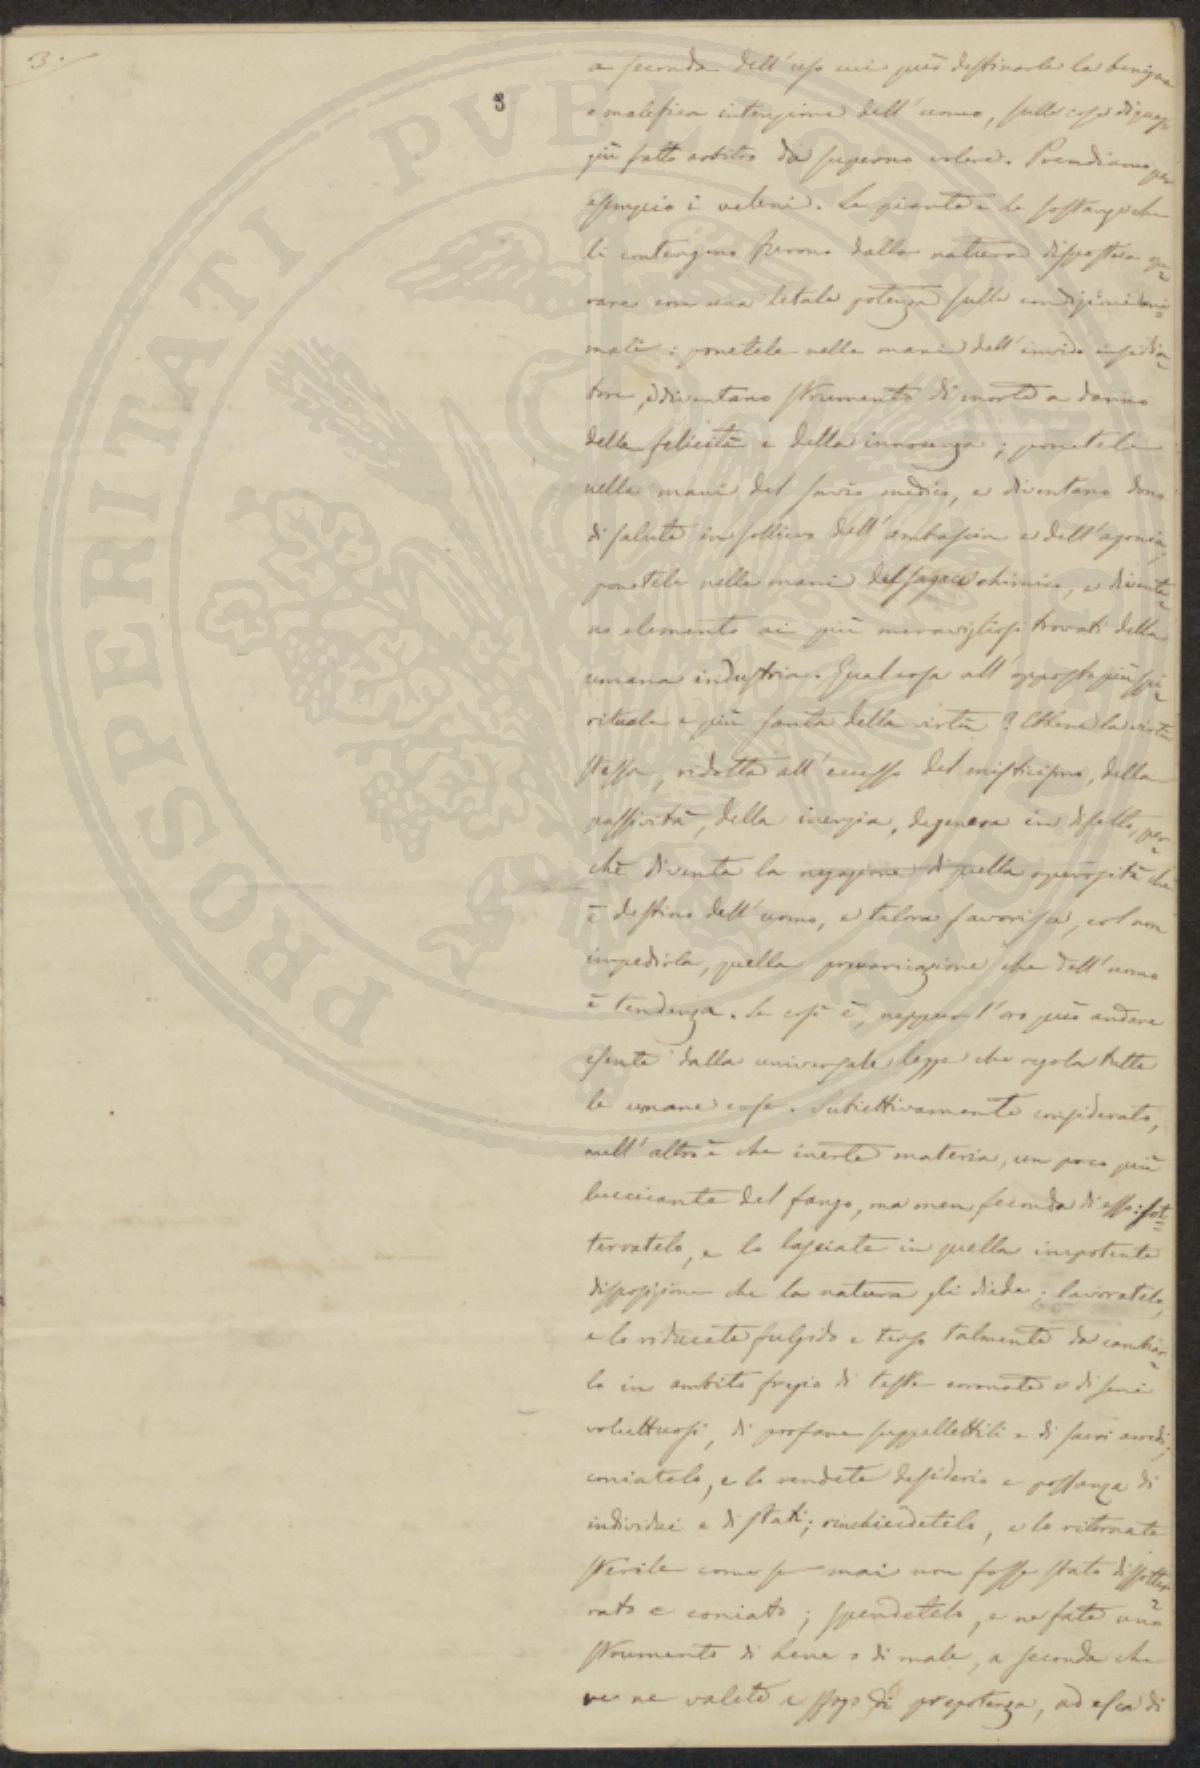 3.
3
a seconda dell'uso cui può destinarle la benigna
o malefica intenzione dell'uomo, sulle cose di quag-
giù fatto arbitro da superno volere. Prendiamo per
esempio i veleni. Le piante e le sostanze che
li contengono furono dalla natura disposte a ope-
rare con una letale potenza sulle condizioni ani-
mali: ponetele nelle mani dell'invido insidia-
tore, e diventano strumento di morte a danno
della felicità e della innocenza; ponetele
nelle mani del savio medico, e diventano dono
di salute in sollievo dell'ambascia e dell'agonia;
ponetele nelle mani del sagace chimico, e divente-
no elemento ai più meravigliosi trovati della
umana industria. Qual cosa all'opposto più spi-
rituale e più santa della virtù? Ebbene la virtù
stessa, ridotta all'eccesso del misticismo, della
passività, della inerzia, degenera in difetto, per-
chè diventa la negazione di quella operosità che
è destino dell'uomo, e talora favorisce, col non
impedirla, quella prevaricazione che dell'uomo
è tendenza. Se così è, neppur l'oro può andare
esente dalla universale legge che regola tutte
le umane cose. Subiettivamente considerato,
null'altro è che inerte materia, un poco più
luccicante del fango, ma men feconda di esso: sot-
terratelo, e lo lasciate in quella impotente
disposizione che la natura gli diede; lavoratelo,
e lo riducete fulgido e terso talmente da cambiar-
lo in ambito fregio di teste coronate e di seni
voluttuosi, di profane suppellettili e di sacri arredi;
coniatelo, e lo rendete desiderio e possanza di
individui e di stati; rinchiudetelo, e lo ritornate
sterile come se mai non fosse stato dissotter-
rato e coniato; spendetelo, e ne fate uno
strumento di bene o di male, a seconda che
ve ne valete a sfogo di prepotenza, ad esca di
PROSPERITATI PVBLICAE